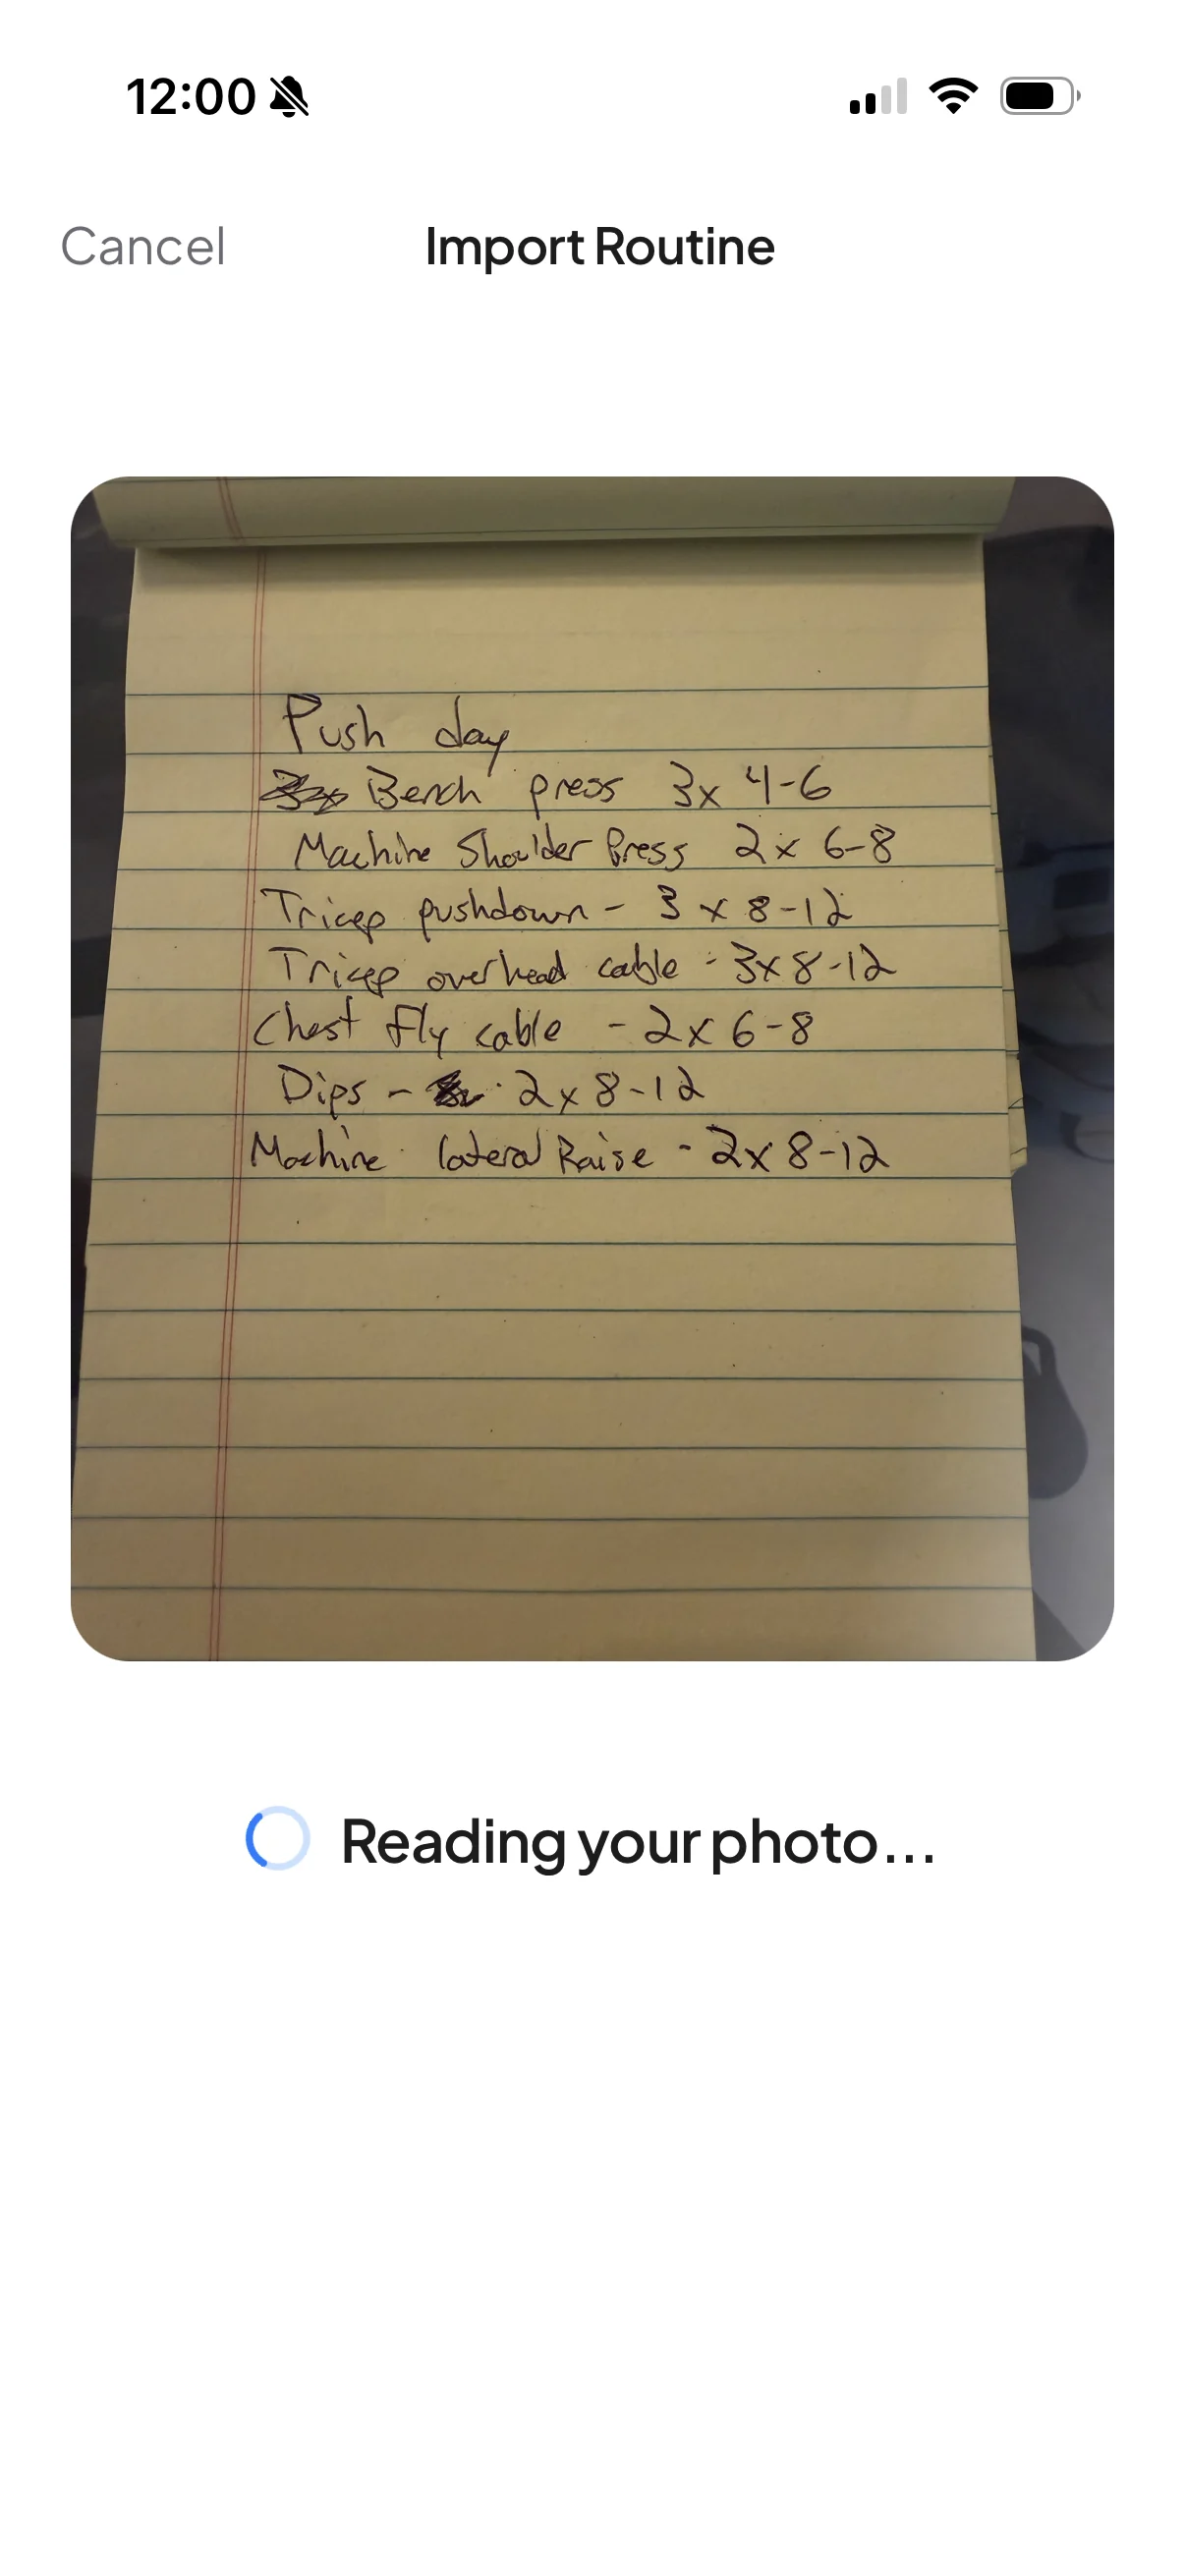 12:00
Cancel Import Routine
Push day
Bench press 3x 4-6
Machine Shoulder Press 2x 6-8
Tricep pushdown - 3 x 8-12
Tricep overhead cable - 3x8-12
Chest fly cable - 2x 6-8
Dips - 2x 8-12
Machine lateral Raise - 2x 8-12
Reading your photo...